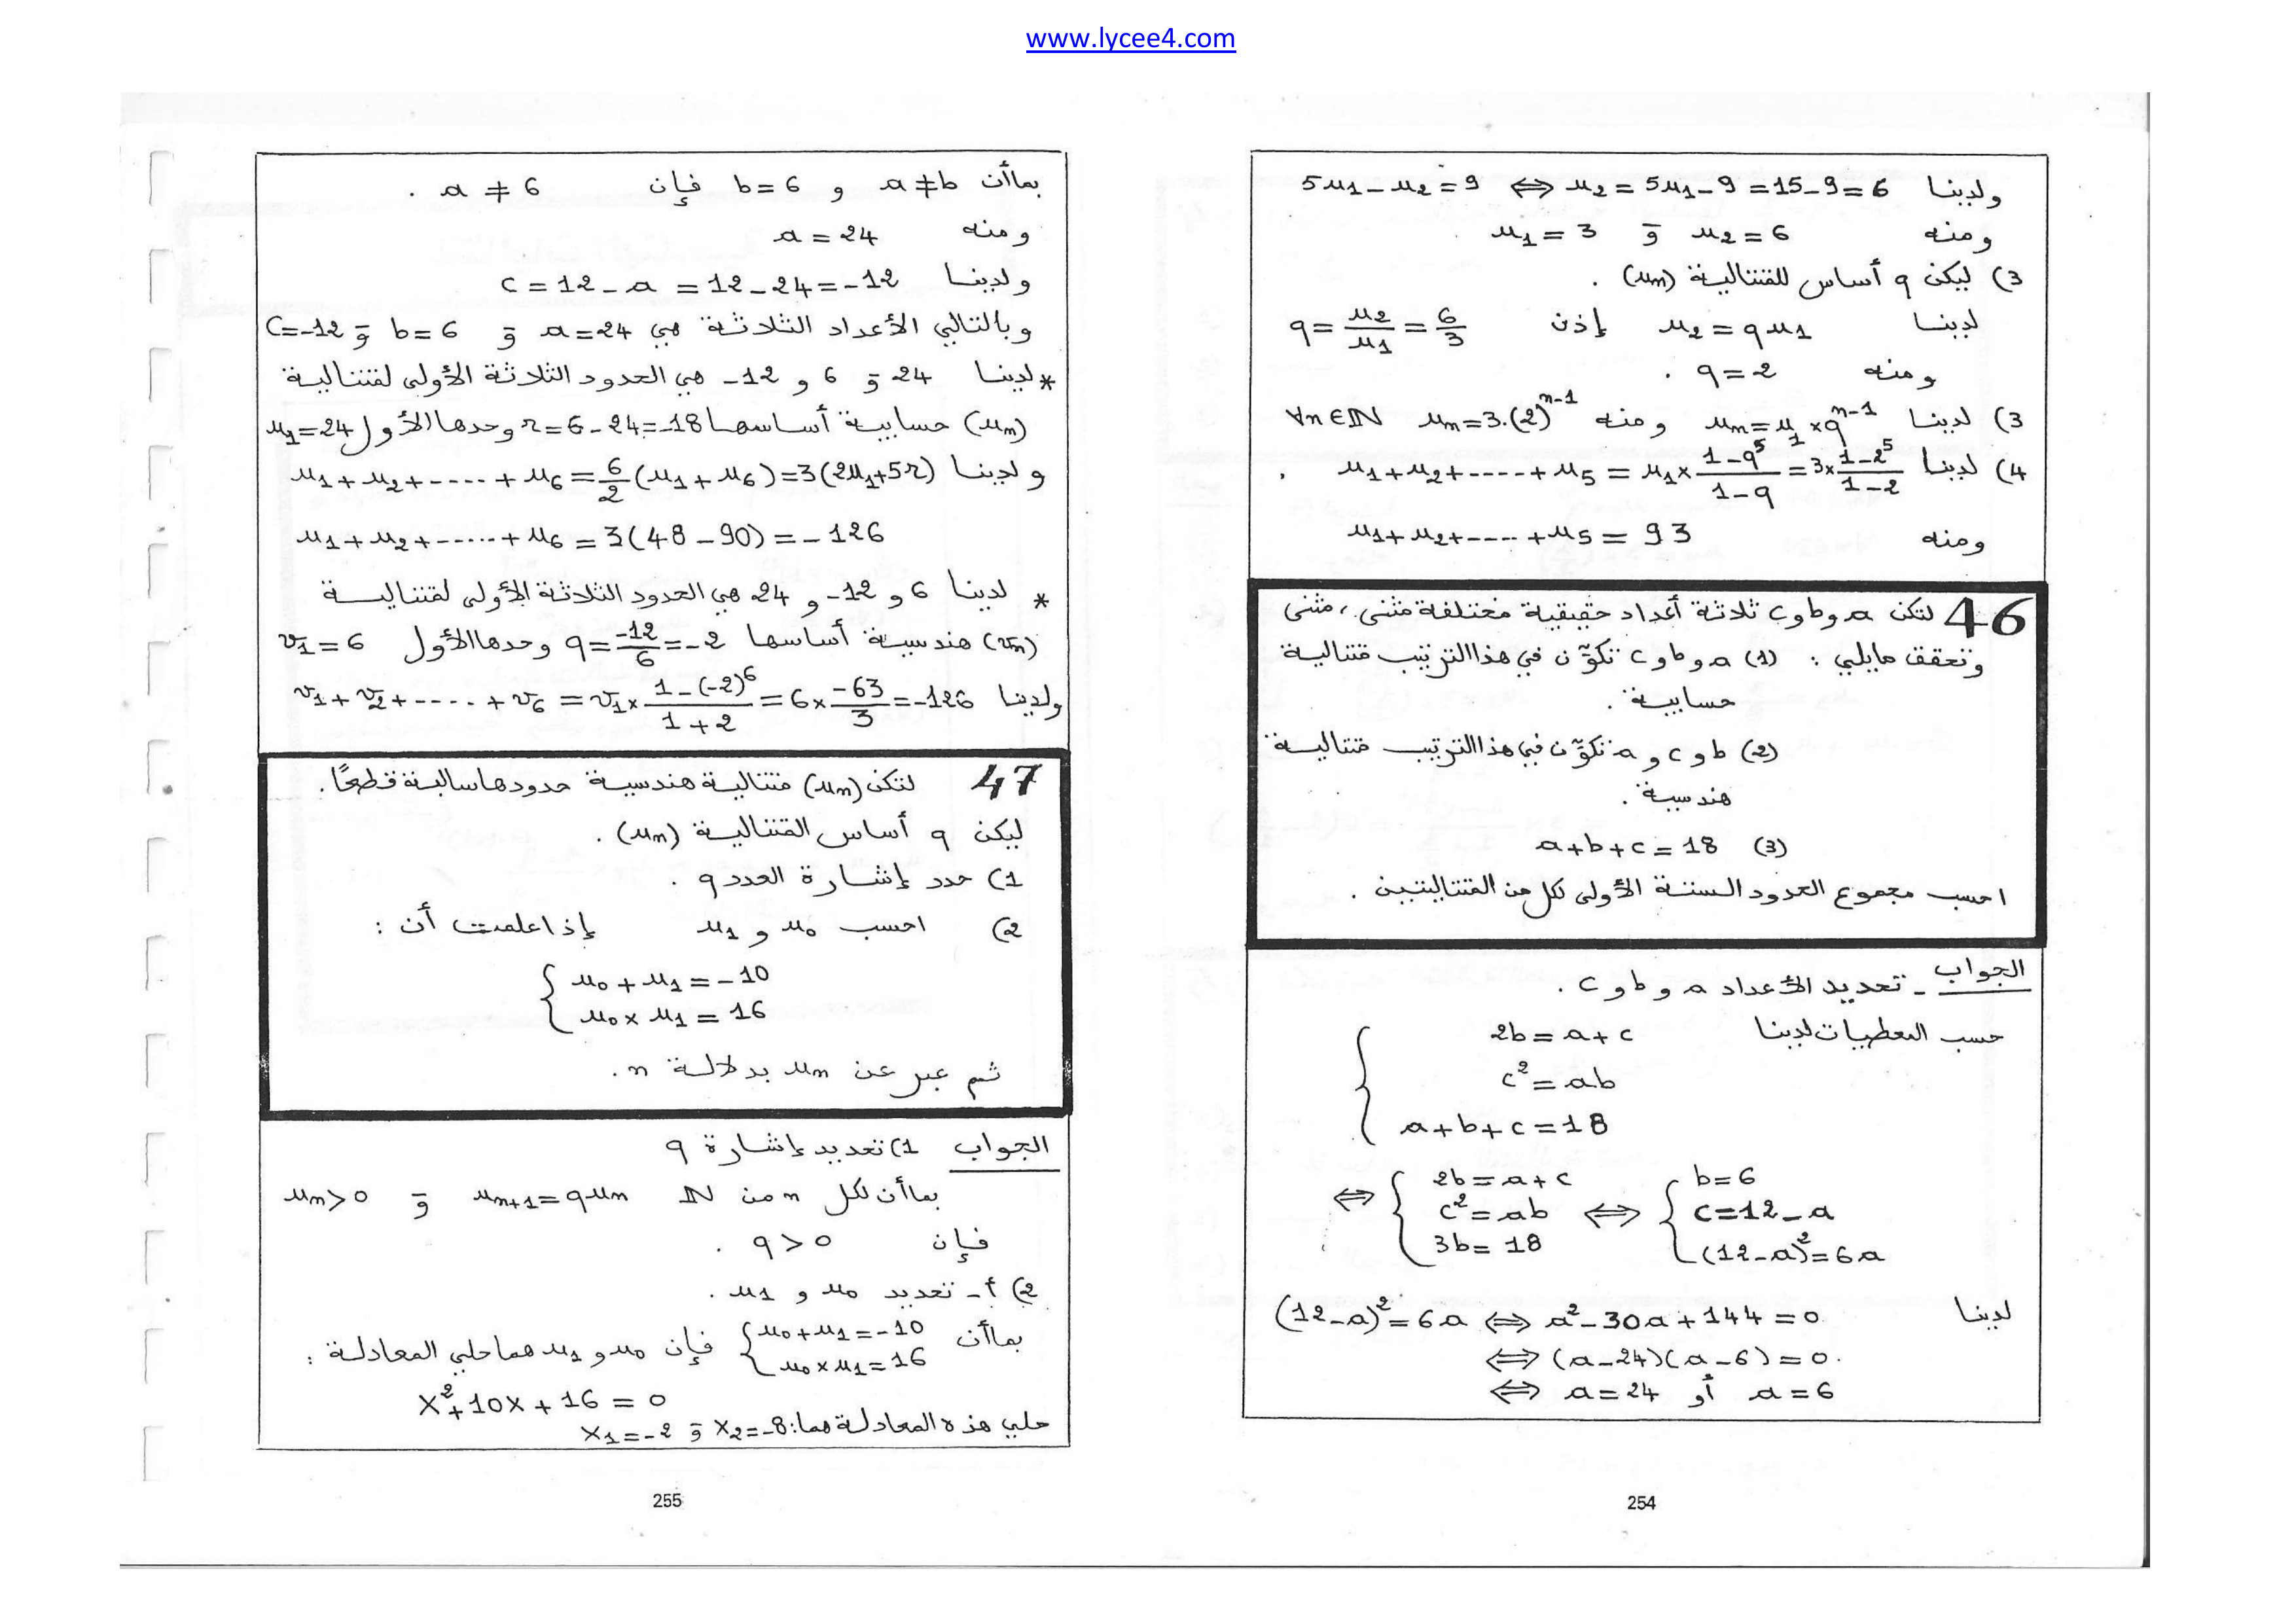 www.lycee4.com
ولدينا 5u₁ - u₂ = 9 ⟺ u₂ = 5u₁ - 9 = 15 - 9 = 6
ومنه u₁ = 3 و u₂ = 6
3) ليكن q أساس للمتتالية (uₙ) .
لدينا u₂ = q u₁ إذن q = u₂/u₁ = 6/3
ومنه q = 2 .
3) لدينا uₙ = u₁ × qⁿ⁻¹ ومنه uₙ = 3.(2)ⁿ⁻¹ ∀n ∈ ℕ
4) لدينا u₁ + u₂ + ---- + u₅ = u₁ × (1 - q⁵)/(1 - q) = 3 × (1 - 2⁵)/(1 - 2) .
ومنه u₁ + u₂ + ---- + u₅ = 93
46 لتكن a و b و c ثلاثة أعداد حقيقية مختلفة مثنى ، مثنى
وتحقق مايلي : (1) a و b و c تكوّن في هذا الترتيب متتالية
حسابية .
(2) b و c و a تكوّن في هذا الترتيب متتالية
هندسية .
(3) a + b + c = 18
احسب مجموع الحدود الستة الأولى لكل من المتتاليتين .
الجواب - تحديد الأعداد a و b و c .
حسب المعطيات لدينا { 2b = a + c
c² = ab
a + b + c = 18
⟺ { 2b = a + c ⟺ { b = 6
c² = ab c = 12 - a
3b = 18 (12 - a)² = 6a
لدينا (12 - a)² = 6a ⟺ a² - 30a + 144 = 0
⟺ (a - 24)(a - 6) = 0.
⟺ a = 24 أو a = 6
254
بماأن a ≠ b و b = 6 فإن a ≠ 6 .
ومنه a = 24
ولدينا c = 12 - a = 12 - 24 = -12
وبالتالي الأعداد الثلاثة هي a = 24 و b = 6 و c = -12
* لدينا 24 و 6 و -12 هي الحدود الثلاثة الأولى لمتتالية
(uₙ) حسابية أساسها r = 6 - 24 = -18 وحدها الأول u₁ = 24
ولدينا u₁ + u₂ + ----- + u₆ = 6/2 (u₁ + u₆) = 3(2u₁ + 5r)
u₁ + u₂ + ----- + u₆ = 3(48 - 90) = -126
* لدينا 6 و -12 و 24 هي الحدود الثلاثة الأولى لمتتالية
(vₙ) هندسية أساسها q = -12/6 = -2 وحدها الأول v₁ = 6
ولدينا v₁ + v₂ + ---- + v₆ = v₁ × (1 - (-2)⁶)/(1 + 2) = 6 × -63/3 = -126
47 لتكن (uₙ) متتالية هندسية حدودها سالبة قطعًا .
ليكن q أساس المتتالية (uₙ) .
1) حدد إشارة العدد q .
2) احسب u₀ و u₁ إذا علمت أن :
{ u₀ + u₁ = -10
u₀ × u₁ = 16
ثم عبر عن uₙ بدلالة n .
الجواب 1) تحديد إشارة q
بماأن لكل n من ℕ uₙ₊₁ = q uₙ و uₙ > 0
فإن q > 0 .
2) أ - تحديد u₀ و u₁ .
بماأن { u₀ + u₁ = -10
u₀ × u₁ = 16 فإن u₀ و u₁ هما حلي المعادلة :
X² + 10X + 16 = 0
حلي هذه المعادلة هما : X₂ = -8 و X₁ = -2
255